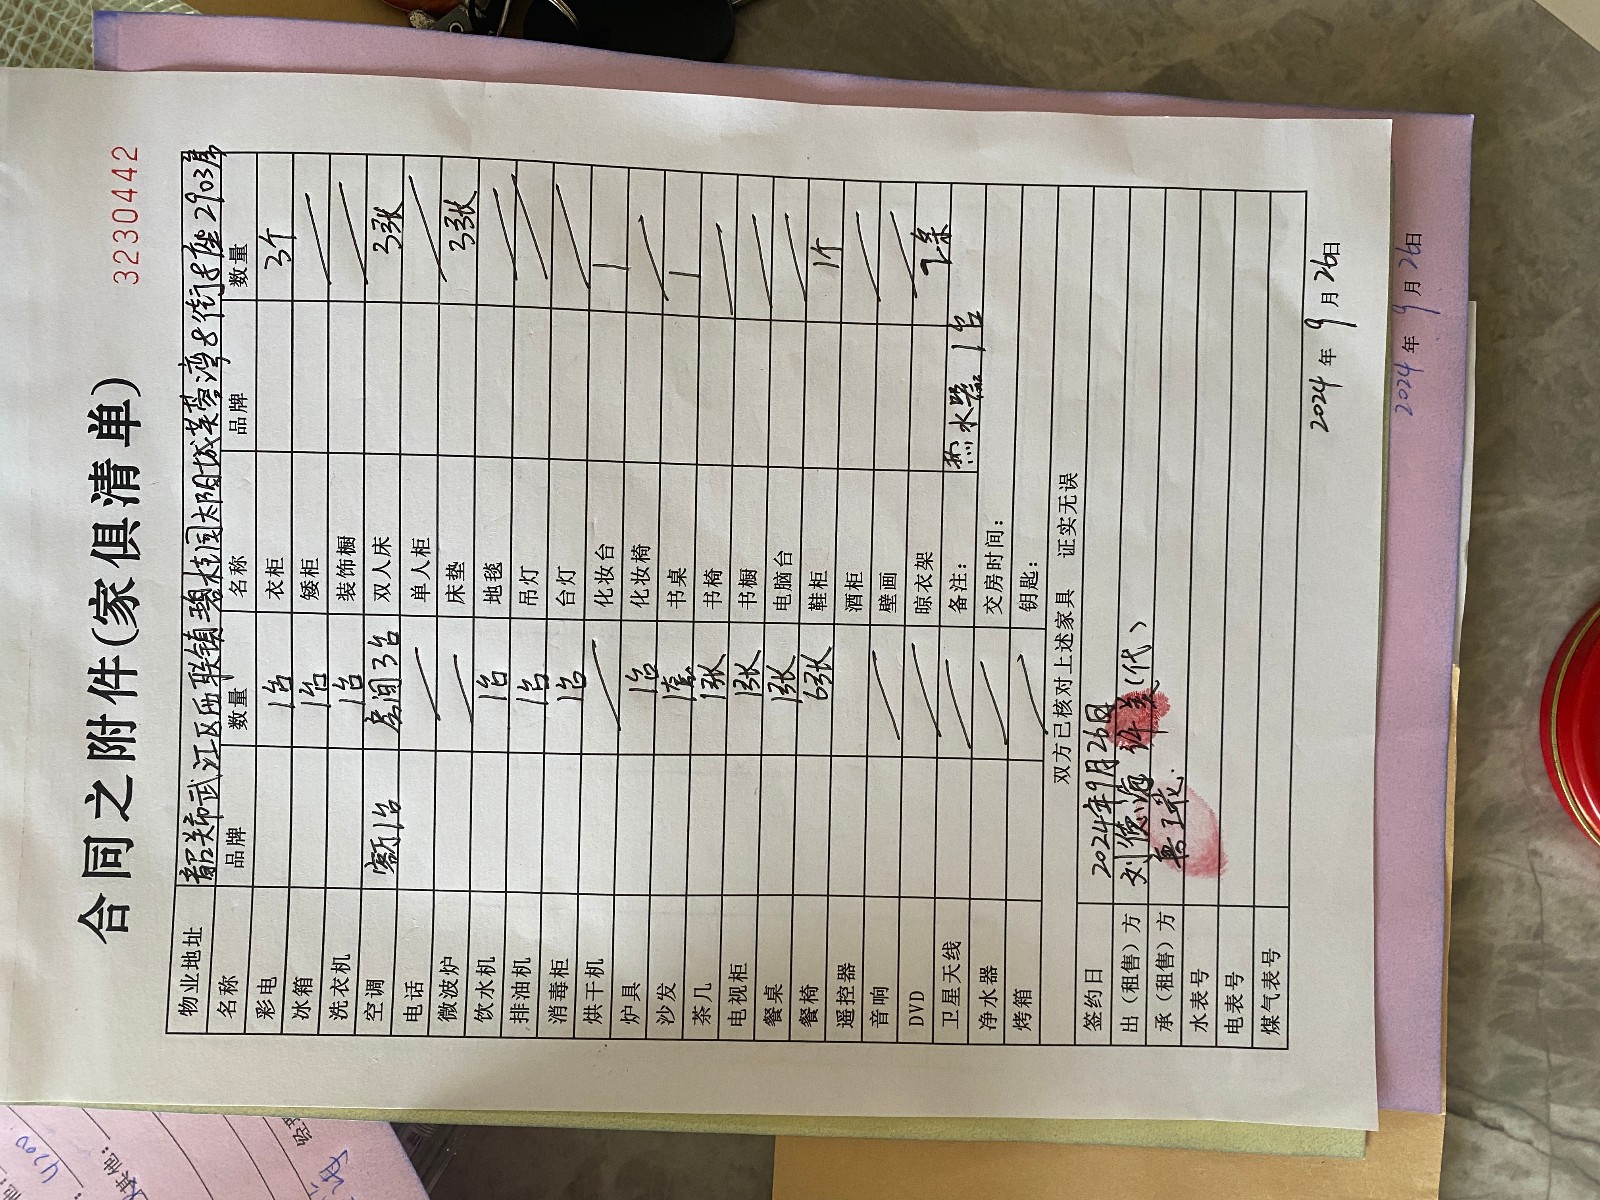 3230442
合同之附件(家俱清单)
物业地址 韶关市武江区西联镇碧桂园太阳城芙蓉湾8街8座2903房
名称 品牌 数量 名称 品牌 数量
彩电 1台 衣柜 3个
冰箱 1台 矮柜
洗衣机 1台 装饰橱
空调 客厅1台 房间3台 双人床 3张
电话 单人柜
微波炉 床垫 3张
饮水机 1台 地毯
排油机 1台 吊灯
消毒柜 1台 台灯
烘干机 化妆台 1
炉具 1台 化妆椅
沙发 1套 书桌 1
茶几 1张 书椅
电视柜 1张 书橱
餐桌 1张 电脑台
餐椅 6张 鞋柜 1个
遥控器 酒柜
音响 壁画
DVD 晾衣架 2条
卫星天线 备注: 热水器 1台
净水器 交房时间:
烤箱 钥匙:
双方已核对上述家具 证实无误
签约日 2024年9月26日
出(租售)方 刘德海 许美(代)
承(租售)方
水表号
电表号
煤气表号
2024年9月26日
2024年9月26日
4200
其他: